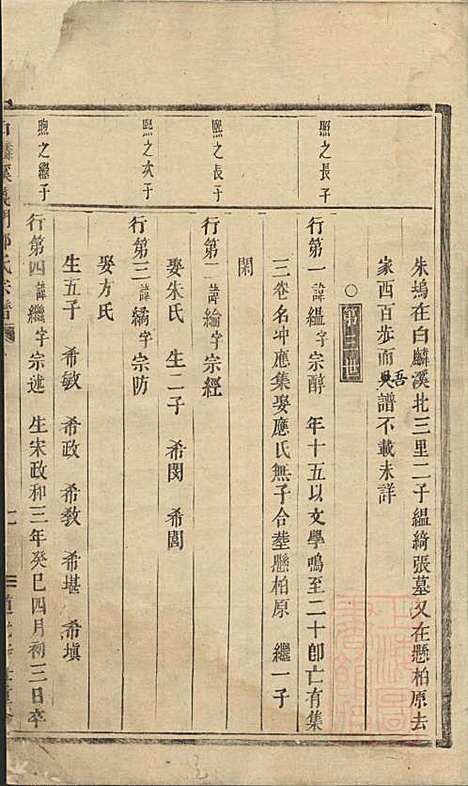 朱塢在白麟溪北三里二子縕綺張墓又在懸柏原去
家西百步而吾與譜不載未詳
○第三世
熙之長子
行第一諱縕字宗醇 年十五以文學鳴至二十卽亡有集
三卷名冲應集娶應氏無子合塟懸柏原 繼一子
閑
熙之長子
行第一諱綸字宗經
娶朱氏 生二子 希閔 希閭
熙之次子
行第三諱繘字宗防
娶方氏
煦之繼子
生五子 希敏 希政 希教 希堪 希塡
行第四諱繼字宗述 生宋政和三年癸巳四月初三日卒
白麟溪義門鄭氏宗譜